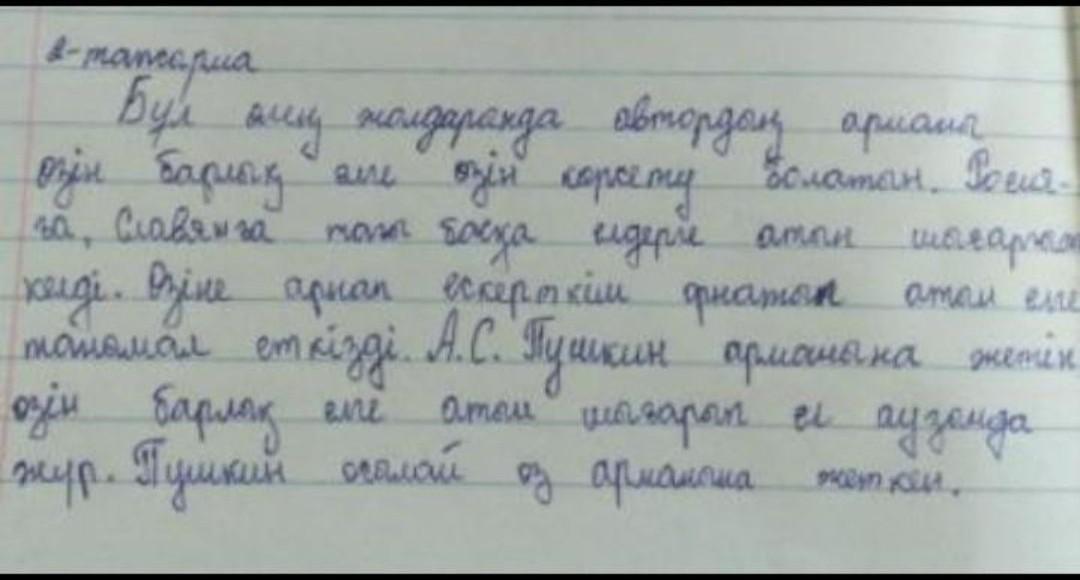 2-тапсырма
Бұл өлең жолдарында автордың арманы
өзін барлық елге өзін көрсету болатын. Росия-
ға, Славянға тағы басқа елдерге атын шығарғысы
келді. Өзіне арнап ескерткіш орнатып атын елге
танымал еткізді. А.С. Пушкин арманына жетіп,
өзін барлық елге атын шығарып ел аузында
жүр. Пушкин осылай өз арманына жеткен.